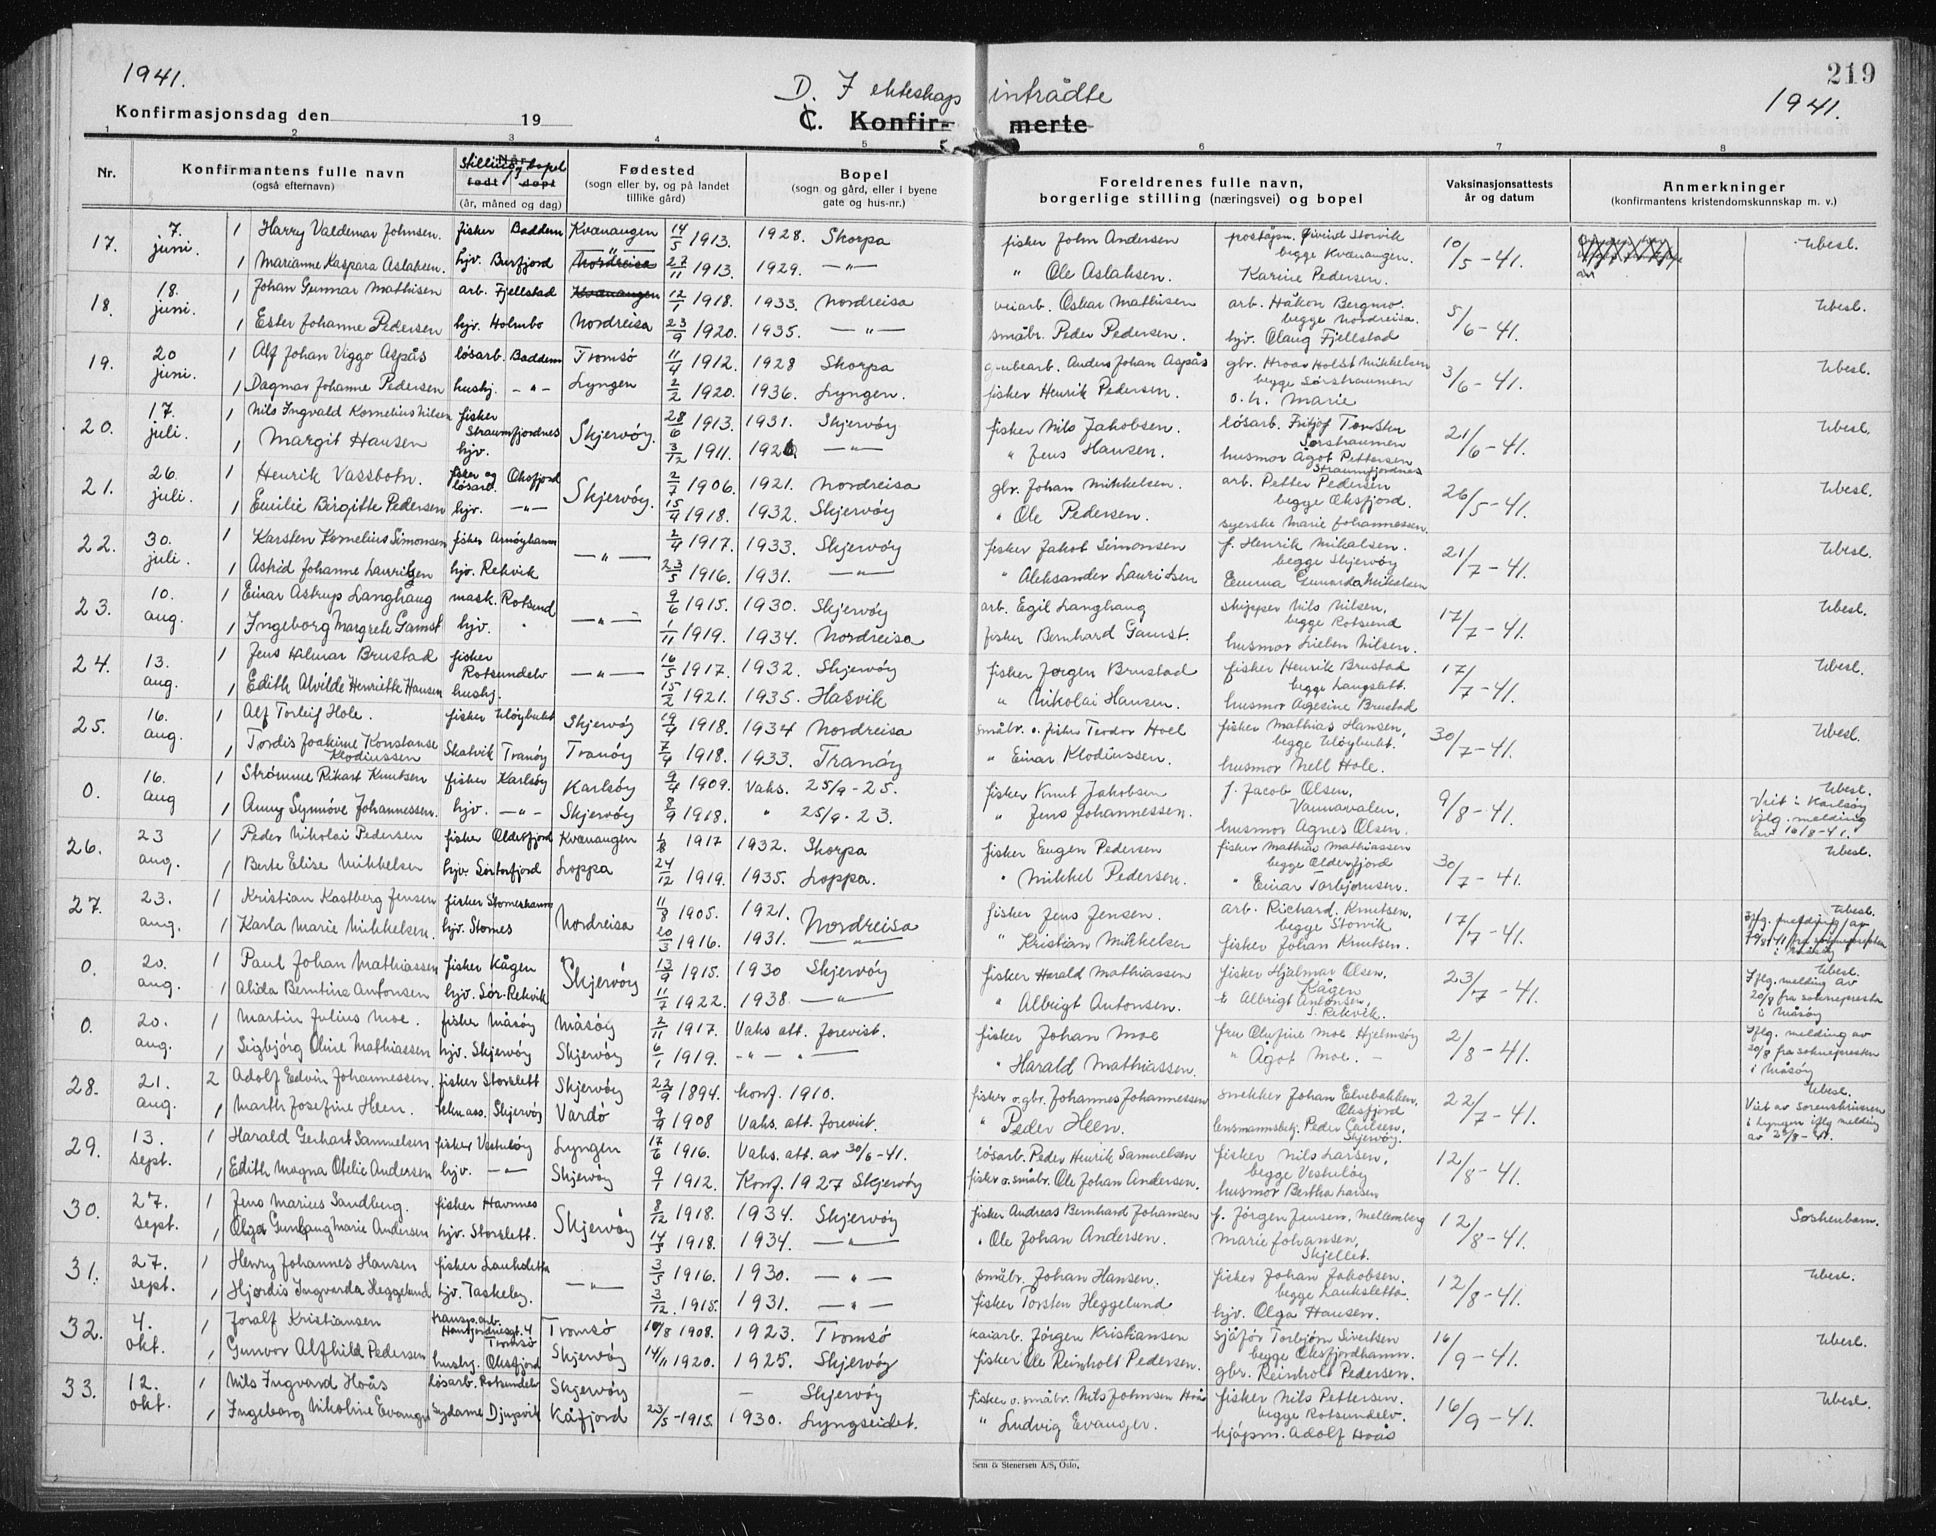 1941.
219
D. I ekteskap inträdte
1941.
Konfirmasjonsdag den 19
C. Konfirmerte
1 2 3 4 5 6 7 8
Nr. Konfirmantens fulle navn (også efternavn) Stilling og bopel Når født døpt (år, måned og dag) Fødested (sogn eller by, og på landet tillike gård) Bopel (sogn og gård, eller i byene gate og hus-nr.) Foreldrenes fulle navn, borgerlige stilling (næringsvei) og bopel Vaksinasjonsattests år og datum Anmerkninger (konfirmantens kristendomskunnskap m. v.)
17. 7. juni 1 Harry Valdemar Johnsen. fisker Baddern Kvænangen 14/5 1913. 1928. Skorpa fisker John Andersen poståpn. Øivind Storvik begge Kvænangen. 10/5-41. Ubesl.
1 Marianne Kaspara Aslaksen. hjv. Burfjord Nordreisa 27/11 1913. 1929. —"— " Ole Aslaksen. Karine Pedersen.
18. 18. juni. 1 Johan Gunnar Mathisen arb. Fjellstad Kvænangen 12/1 1918. 1933. Nordreisa veiarb. Oskar Mathisen arb. Håkon Bergmo. begge Nordreisa. 5/6-41. Ubesl.
1 Ester Johanne Pedersen hjv. Holmbo Nordreisa 23/9 1920. 1935. —"— småbr. Peder Pedersen. hjv. Olaug Fjellstad
19. 20 juni. 1 Alf Johan Viggo Aspås løsarb. Baddern Tromsø 11/4 1912. 1928 Skorpa grubearb. Anders Johan Aspås gbr. Hroar Holst Mikkelsen begge Sørstraumen 3/6-41. Ubesl.
1 Dagmar Johanne Pedersen hushj. —"— Lyngen 2/2 1920. 1936. Lyngen. fisker Henrik Pedersen. o. h. Marie
20. 17. juli. 1 Nils Ingvald Kornelius Nilsen fisker Straumfjordnes Skjervøy. 28/6 1913. 1931. Skjervøy fisker Nils Jakobsen. løsarb. Fritjof Sørstraumen 21/6-41. Ubesl.
1 Margit Hansen hjv. 3/12 1911. 1926. —"— " Jens Hansen. husmor Ågot Pettersen Straumfjordnes
21. 26. juli. 1 Henrik Vassbotn. fisker og løsarb. Oksfjord Skjervøy. 2/7 1906. 1921. Nordreisa gbr. Johan Mikkelsen. arb. Petter Pedersen begge Oksfjord. 26/5-41. Ubesl.
1 Emilie Birgitte Pedersen hjv. —"— 15/9 1918. 1932. Skjervøy " Ole Pedersen. syerske Marie Johannessen.
22. 30. juli. 1 Karsten Kornelius Simonsen fisker Arnøyhamn —"— 2/4 1917. 1933. Skjervøy fisker Jakob Simonsen f. Henrik Mikalsen. begge Skjervøy 21/7-41. Ubesl.
1 Astrid Johanne Lauritzen hjv. Rekvik 23/5 1916. 1931. —"— " Aleksander Lauritsen Emma Gunarda Mikelsen
23. 10. aug. 1 Einar Astrup Langhaug mask. Rotsund —"— 9/6 1915. 1930. Skjervøy arb. Egil Langhaug skipper Nils Nilsen, begge Rotsund 17/7-41. Ubesl.
1 Ingeborg Margrete Gamst hjv. " 1/11 1919. 1934. Nordreisa fisker Bernhard Gamst. husmor Nilsen.
24. 13. aug. 1 Jens Hilmar Brustad fisker Rotsundelv —"— 16/5 1917. 1932. Skjervøy fisker Jørgen Brustad fisker Henrik Brustad begge Langslett. 17/7-41. Ubesl.
1 Edith Alvilde Henriette Hansen hushj. 15/2 1921. 1935. Hasvik " Nikolai Hansen. husmor Agesine Brustad
25. 16. aug. 1 Alf Torleif Hole. fisker Uløybukt Skjervøy 19/4 1918. 1934 Nordreisa småbr. o. fisker Teodor Hoel fisker Mathias Hansen, begge Uløybukt. 30/7-41. Ubesl.
1 Tordis Joakime Konstanse Klodiussen Skatvik Tranøy Tranøy 7/4 1918. 1933. Tranøy " Einar Klodiussen. husmor Nell Hole.
0. 16. aug 1 Strømme Rikart Knutsen fisker Karlsøy Karlsøy 9/4 1909. Vaks. 25/9-25. fisker Knut Jakobsen f. Jacob Olsen, Vannavalen, 9/8-41. Ubesl. Viet i Karlsøy iflg. melding av 16/8-41.
1 Anny Synnöve Johannessen. hjv. —"— Skjervøy 8/9 1918. " 25/9-23. " Jens Johannessen. husmor Agnes Olsen.
26. 23 aug. 1 Peder Nikolai Pedersen fisker Olderfjord Kvænangen 1/8 1917 1932. Skorpa fisker Eugen Pedersen fisker Mathias Mathiassen begge Olderfjord 30/7-41. Ubesl.
1 Berte Elise Mikkelsen hjv. Sørtorfjord Loppa 24/12 1919. 1935. Loppa. " Mikkel Pedersen. " Einar Torbjørnsen.
27. 23. aug. 1 Kristian Kastberg Jensen fisker Nordreisa 11/8 1905. 1921. Nordreisa fisker Jens Jensen. arb. Richard Knutsen, begge Storvik 17/7-41. Ubesl.
1 Karla Marie Mikkelsen. hjv. Stornes 20/3 1916. 1931. —"— " Kristian Mikkelsen fisker Johan Knutsen.
0. 20. aug. 1 Paul Johan Mathiassen fisker Kågen Skjervøy 13/9 1915. 1930 Skjervøy fisker Harald Mathiassen fisker Hjalmar Olsen, Kågen 23/7-41. Ubesl. Iflg. melding av 20/8 fra soknepresten i Måsøy
1 Alida Berntine Antonsen hjv. Sör-Rekvik 11/7 1922. 1938. —"— " Albrigt Antonsen. Albrigt Antonsen, S. Rekvik.
0. 20. aug. 1 Martin Julius Moe. fisker Måsøy Måsøy 2/11 1917. Vaks att. forevist. fisker Johan Moe fru Olufine Moe Hjelmsøy 2/8-41. Iflg. melding av 20/8 fra soknepresten i Måsøy
1 Sigbjörg Oline Mathiassen hjv. Skjervøy Skjervøy 6/1 1919. —"— " Harald Mathiassen. " Ågot Moe. —
28. 21. aug. 2 Adolf Edvin Johannessen. fisker Storslett Skjervøy 22/9 1894. konf. 1910. fisker o. gbr. Johannes Johannessen snekker Johan Elvebakken, Oksfjord 22/7-41. Ubesl. Viet av sorenskriveren i Lyngen iflg melding av 22/8-41.
1 Marth Josefine Heen. Skjervøy Vardø 9/9 1908 Vaks. att. forevist. " Peder Heen. lensmannsbetj. Peder Carlsen, Skjervøy.
29. 13. sept. 1 Harald Gerhart Samuelsen fisker Vesteløy Lyngen 17/6 1916. Vaks. att. av 30/6-41. løsarb. Peder Henrik Samuelsen fisker Nils Larsen, begge Vesteløy 12/8-41. Ubesl.
1 Edith Magna Otelie Andersen hjv. —"— Skjervøy 9/1 1912. Konf. 1927 Skjervøy fisker o. småbr. Ole Johan Andersen. husmor Bertha Larsen
30. 27. sept. 1 Jens Marius Sandberg. fisker Havnnes Skjervøy 8/12 1918. 1934. Skjervøy fisker Andreas Bernhard Johansen f. Jörgen Jensen, Mellemberg 12/8-41. Søskenbarn.
1 Olga Gunlaug Marie Andersen hjv. Storslett. 14/5 1918. 1934. —"— " Ole Johan Andersen. Marie Johansen, Skjellet.
31. 27. sept. 1 Henry Johannes Hansen fisker Lauksletta —"— 3/5 1916. 1930. —"— småbr. Johan Hansen. fisker Johan Jakobsen. begge Lauksletta 12/8-41. Ubesl.
1 Hjørdis Ingvarda Heggelund hjv. Taskeby. 3/12 1915. 1931. —"— fisker Torsten Heggelund hjv. Olga Hansen.
32. 4. okt. 1 Joralf Kristiansen transp.arb. Tromsø Tromsø 10/8 1908. 1923. Tromsø kaiarb. Jörgen Kristiansen sjåför Torbjørn Sivertsen begge Oksfjordhamn. 16/9-41. Ubesl.
1 Gunvor Alfhild Pedersen hushj. Oksfjord Skjervøy 14/11 1920. 1925. Skjervøy fisker Ole Reinholt Pedersen. gbr. Reinholt Pedersen.
33. 12. okt. 1 Nils Ingvard Hoås løsarb. Rotsundelv Skjervøy — Skjervøy fisker o. småbr. Nils Johnsen Hoås fisker Nils Pettersen. begge Rotsundelv. 16/9-41. Ubesl.
1 Ingeborg Nikoline Evanger sydame Djupvik Kåfjord 23/5-1915. 1930. Lyngseidet. " Ludvig Evanger. hjápm. Adolf Hoås
Sem & Stenersen A/S, Oslo.